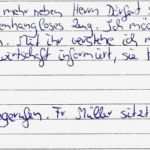 mehr neben Herrn Dürfert
enhangloses Zeug. Ich möc
. Mit ihr verstehe ich m
wirtschaft informiert, sie
gerufen. Fr Müller sitzt